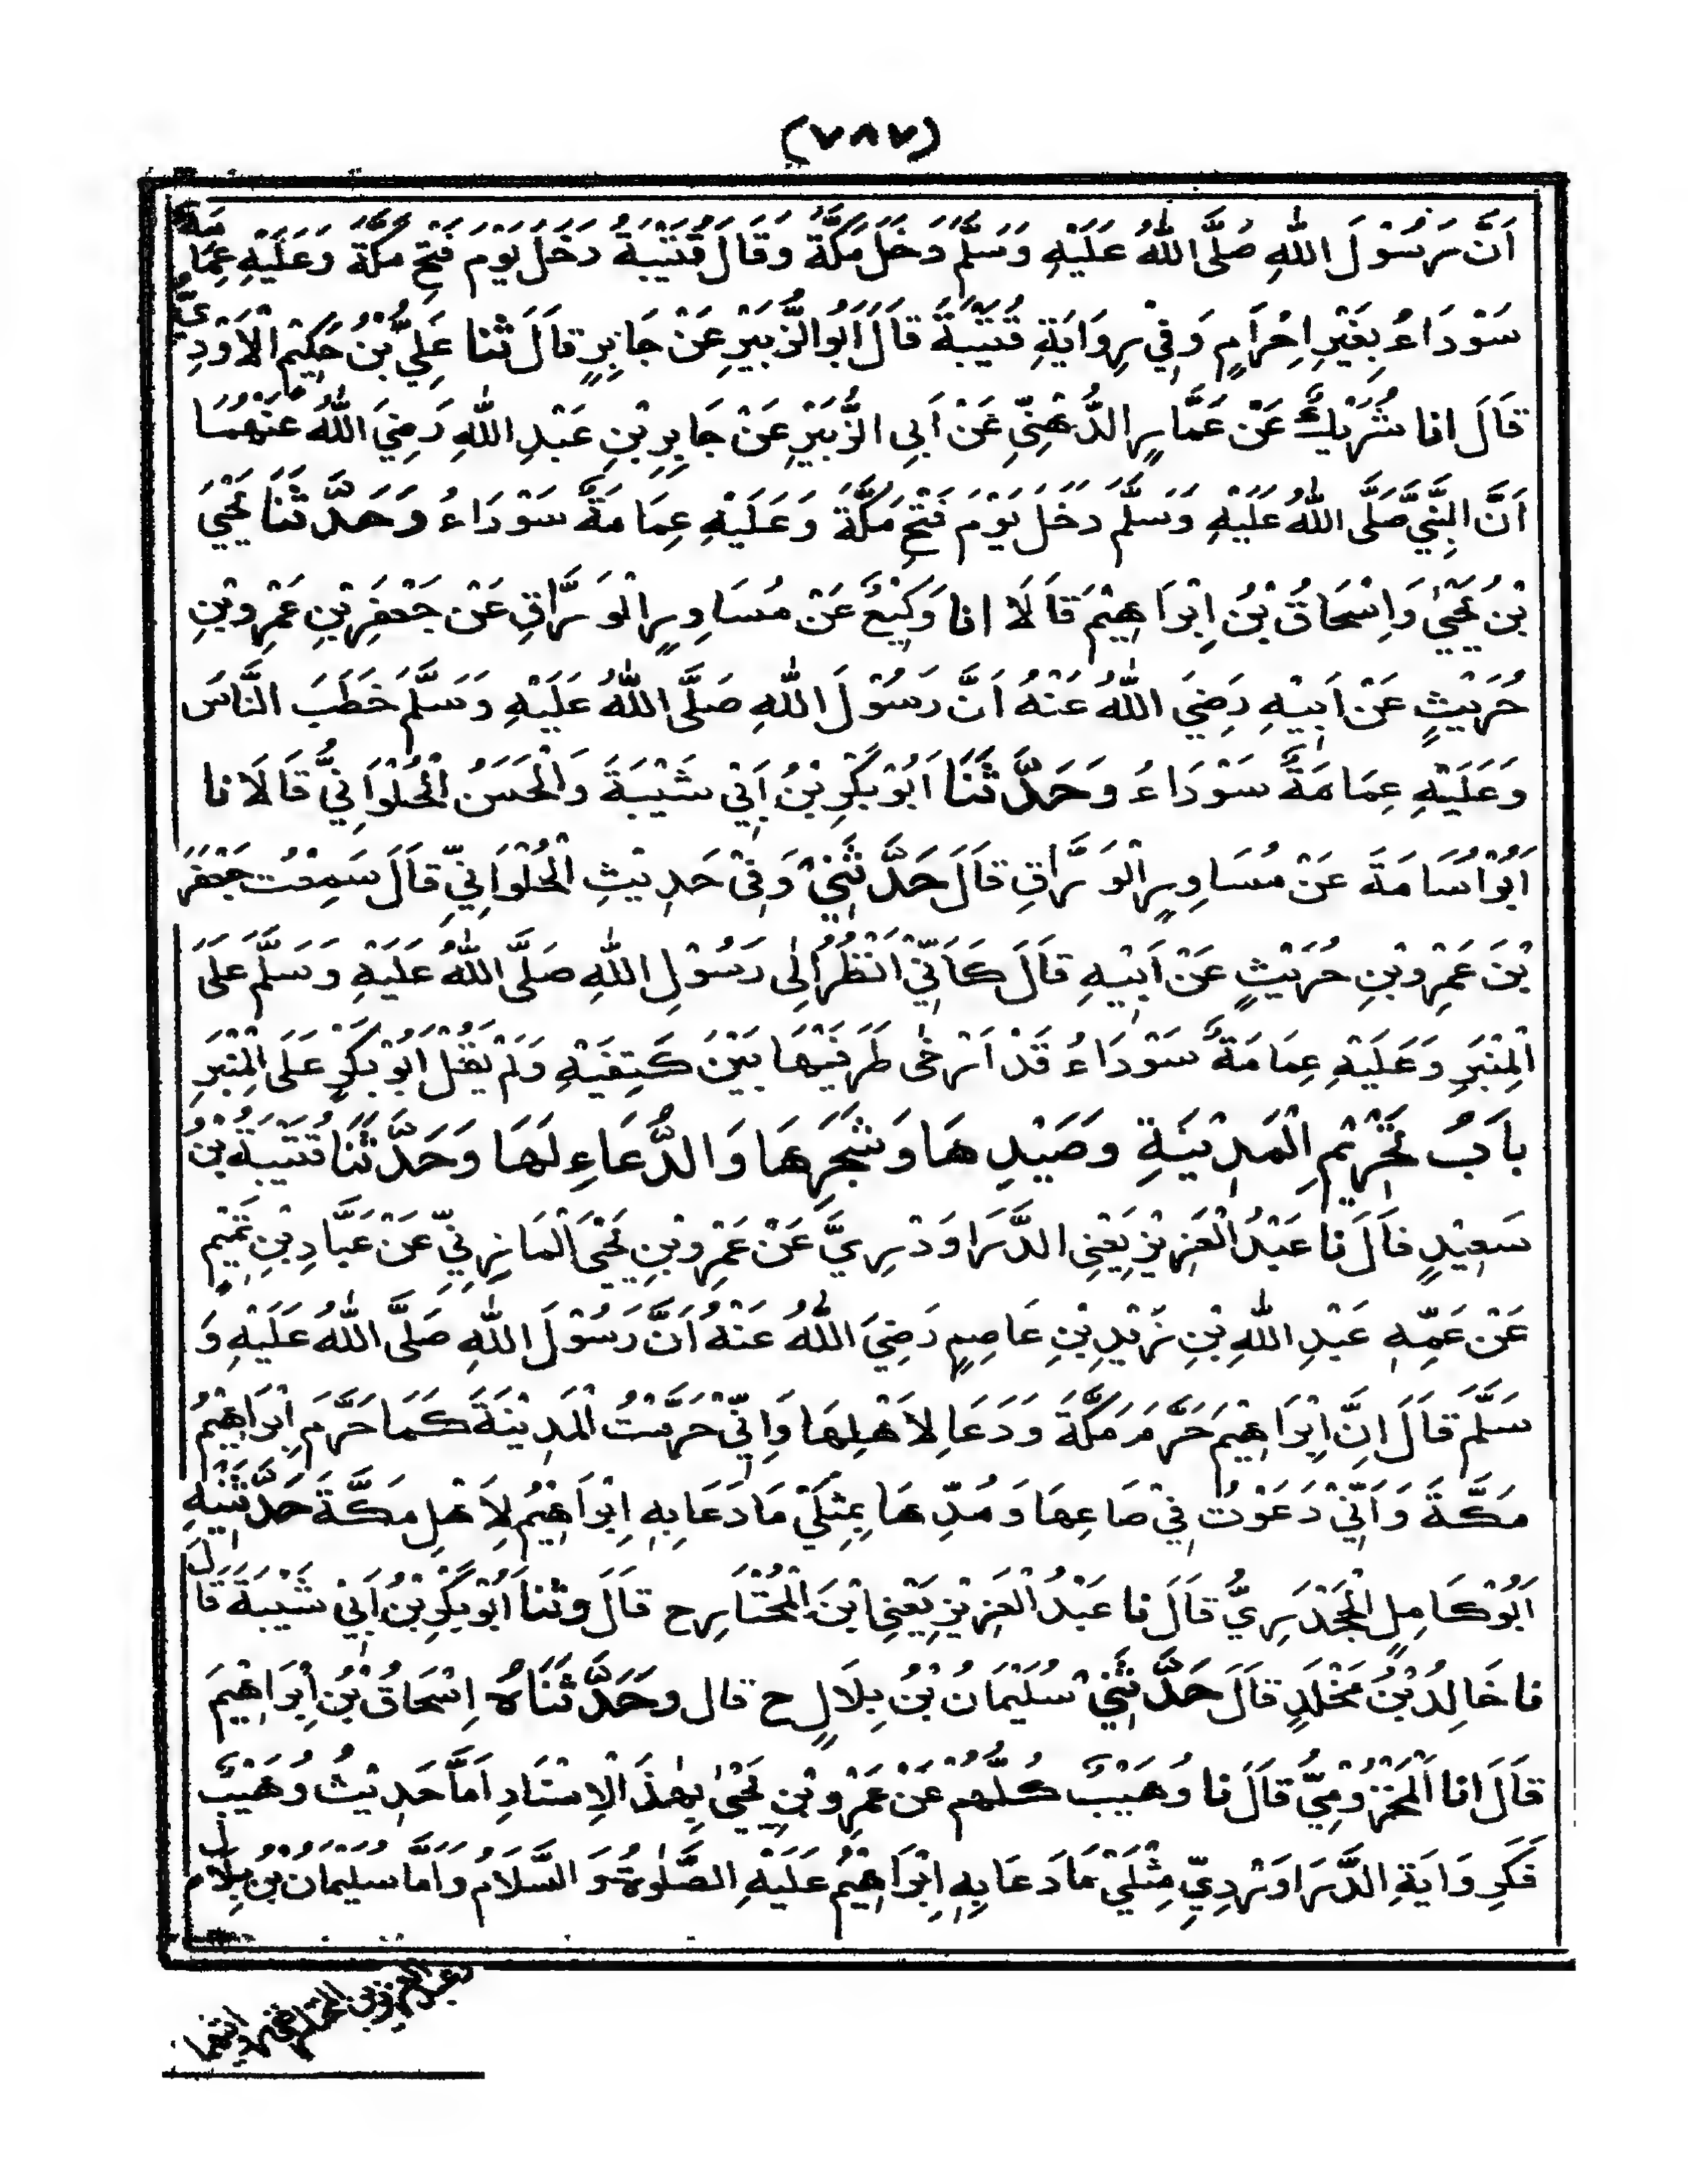 (٧٨٧)
اَنَّ رَسُوْلَ اللّٰهِ صَلَّى اللّٰهُ عَلَيْهِ وَسَلَّمَ دَخَلَ مَكَّةَ وَقَالَ قُتَيْبَةُ دَخَلَ يَوْمَ فَتْحِ مَكَّةَ وَعَلَيْهِ عِمَامَةٌ
سَوْدَاءُ بِغَيْرِ اِحْرَامٍ وَفِيْ رِوَايَةِ قُتَيْبَةَ قَالَ اَبُو الزُّبَيْرِ عَنْ جَابِرٍ قَالَ ثَنا عَلِيُّ بْنُ حَكِيْمِ الْاَوْدِيُّ
قَالَ انا شَرِيْكٌ عَنْ عَمَّارٍ الدُّهْنِيِّ عَنْ اَبِى الزُّبَيْرِ عَنْ جَابِرِ بْنِ عَبْدِ اللّٰهِ رَضِيَ اللّٰهُ عَنْهُمَا
اَنَّ النَّبِيَّ صَلَّى اللّٰهُ عَلَيْهِ وَسَلَّمَ دَخَلَ يَوْمَ فَتْحِ مَكَّةَ وَعَلَيْهِ عِمَامَةٌ سَوْدَاءُ وَحَدَّثَنَا يَحْيَى
بْنُ يَحْيٰى وَاِسْحَاقُ بْنُ اِبْرَاهِيْمَ قَالَا انا وَكِيْعٌ عَنْ مُسَاوِرٍ الْوَرَّاقِ عَنْ جَعْفَرِ بْنِ عَمْرِو بْنِ
حُرَيْثٍ عَنْ اَبِيْهِ رَضِيَ اللّٰهُ عَنْهُ اَنَّ رَسُوْلَ اللّٰهِ صَلَّى اللّٰهُ عَلَيْهِ وَسَلَّمَ خَطَبَ النَّاسَ
وَعَلَيْهِ عِمَامَةٌ سَوْدَاءُ وَحَدَّثَنَا اَبُوْ بَكْرِ بْنُ اَبِيْ شَيْبَةَ وَالْحَسَنُ الْحُلْوَانِيُّ قَالَا نا
اَبُوْ اُسَامَةَ عَنْ مُسَاوِرٍ الْوَرَّاقِ قَالَ حَدَّثَنِيْ وَفِيْ حَدِيْثِ الْحُلْوَانِيِّ قَالَ سَمِعْتُ جَعْفَرَ
بْنَ عَمْرِو بْنِ حُرَيْثٍ عَنْ اَبِيْهِ قَالَ كَاَنِّيْ اَنْظُرُ اِلٰى رَسُوْلِ اللّٰهِ صَلَّى اللّٰهُ عَلَيْهِ وَسَلَّمَ عَلَى
الْمِنْبَرِ وَعَلَيْهِ عِمَامَةٌ سَوْدَاءُ قَدْ اَرْخٰى طَرَفَيْهَا بَيْنَ كَتِفَيْهِ وَلَمْ يَقُلْ اَبُوْ بَكْرٍ عَلَى الْمِنْبَرِ
بابُ تَحْرِيْمِ الْمَدِيْنَةِ وَصَيْدِهَا وَشَجَرِهَا وَالدُّعَاءِ لَهَا وَحَدَّثَنَا قُتَيْبَةُ بْنُ
سَعِيْدٍ قَالَ نا عَبْدُ الْعَزِيْزِ يَعْنِى الدَّرَاوَرْدِيَّ عَنْ عَمْرِو بْنِ يَحْيَى الْمَازِنِيِّ عَنْ عَبَّادِ بْنِ تَمِيْمٍ
عَنْ عَمِّهٖ عَبْدِ اللّٰهِ بْنِ زَيْدِ بْنِ عَاصِمٍ رَضِيَ اللّٰهُ عَنْهُ اَنَّ رَسُوْلَ اللّٰهِ صَلَّى اللّٰهُ عَلَيْهِ وَ
سَلَّمَ قَالَ اِنَّ اِبْرَاهِيْمَ حَرَّمَ مَكَّةَ وَدَعَا لِاَهْلِهَا وَاِنِّيْ حَرَّمْتُ الْمَدِيْنَةَ كَمَا حَرَّمَ اِبْرَاهِيْمُ
مَكَّةَ وَاَنِّيْ دَعَوْتُ فِيْ صَاعِهَا وَمُدِّهَا بِمِثْلَيْ مَا دَعَا بِهٖ اِبْرَاهِيْمُ لِاَهْلِ مَكَّةَ حَدَّثَنِيْهِ
اَبُوْ كَامِلٍ الْجَحْدَرِيُّ قَالَ نا عَبْدُ الْعَزِيْزِ يَعْنِى ابْنَ الْمُخْتَارِ ح قَالَ وثنا اَبُوْ بَكْرِ بْنُ اَبِيْ شَيْبَةَ قَالَ
نا خَالِدُ بْنُ مَخْلَدٍ قَالَ حَدَّثَنِيْ سُلَيْمَانُ بْنُ بِلَالٍ ح قال وحَدَّثَنَاهُ اِسْحَاقُ بْنُ اِبْرَاهِيْمَ
قَالَ انا الْمَخْزُوْمِيُّ قَالَ نا وُهَيْبٌ كُلُّهُمْ عَنْ عَمْرِو بْنِ يَحْيٰى بِهٰذَا الْاِسْنَادِ اَمَّا حَدِيْثُ وُهَيْبٍ
فَكَرِوَايَةِ الدَّرَاوَرْدِيِّ مِثْلَيْ مَا دَعَا بِهٖ اِبْرَاهِيْمُ عَلَيْهِ الصَّلٰوةُ وَ السَّلَامُ وَاَمَّا سُلَيْمَانُ بْنُ بِلَالٍ